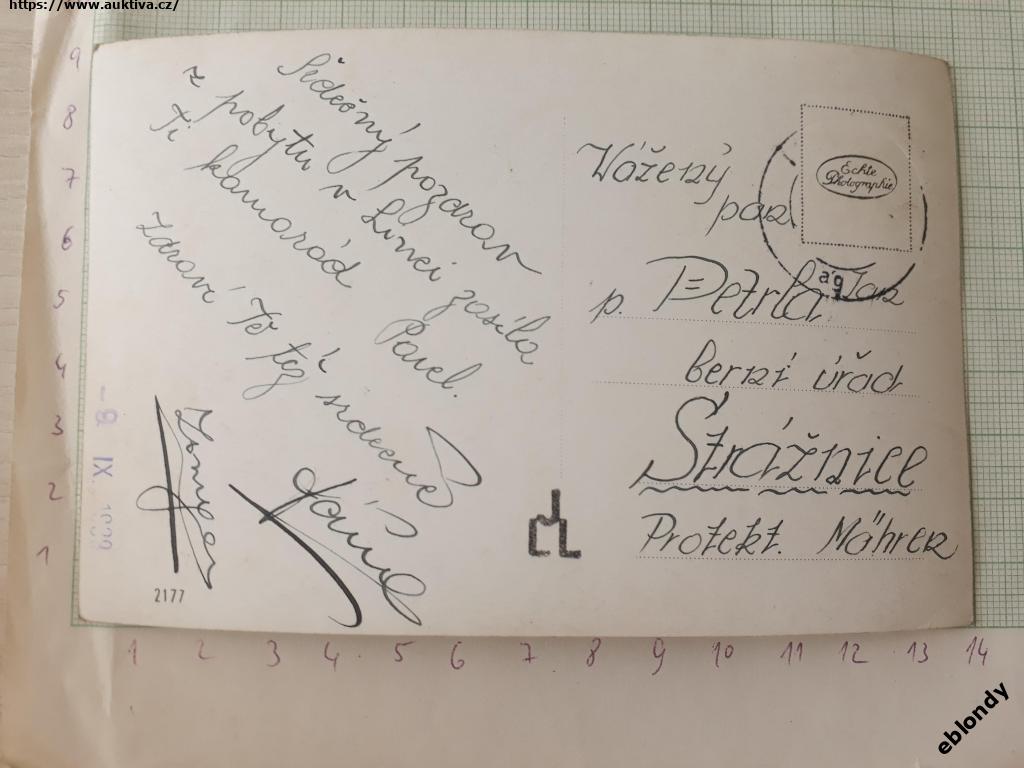 https://www.auktiva.cz/
Srdečný pozdrav
z pobytu v Linci zasíla
Ti kamarád Pavel.
Zdraví Tě též srdečně
Vážený
pan
p. Petrla Jan
berní úřad
Strážnice
Protekt. Mähren
Echte
Photographie
ag
- 8. IX. 1939
2177
9
8
7
6
5
4
3
2
1
1 2 3 4 5 6 7 8 9 10 11 12 13 14
eblondy